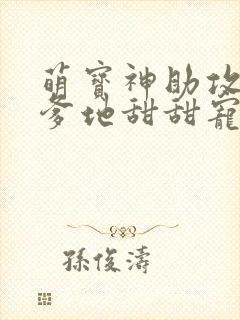 萌寶神助攻
爹地甜甜寵
孫俊濤